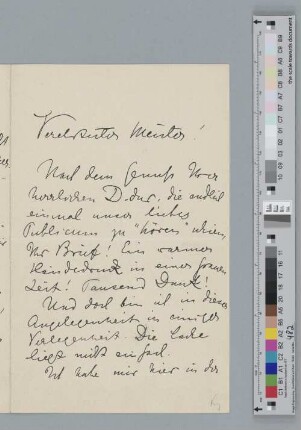 Verehrter Meister!
Nach dem Genuß Ihrer
herrlichen D-dur, die endlich
einmal unser liebes
Publicum zu "hören" schien
Ihr Brief! Ein warmer
Händedruck in einer grauen
Zeit! Tausend Dank!
Und doch bin ich in dieser
Angelegenheit in einiger
Verlegenheit. Die Sache
liegt nicht einfach.
Ich habe mir hier in der